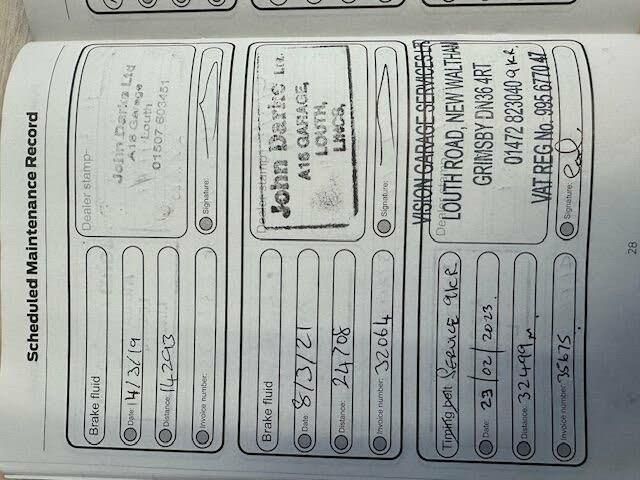 Scheduled Maintenance Record
Brake fluid
Date: 14/3/19
Distance: 14293
Invoice number:
Dealer stamp
John Darke Ltd
A16 Garage
Louth
01507 603451
Signature:
Brake fluid
Date: 8/3/21
Distance: 24708
Invoice number: 32064
Dealer stamp
John Darke Ltd.
A16 GARAGE,
LOUTH,
LINCS,
Signature:
Timing belt SERVICE 9KR
Date: 23/02/2023.
Distance: 32499m.
Invoice number: 35675.
VISION GARAGE SERVICES LTD
LOUTH ROAD, NEW WALTHAM
GRIMSBY DN36 4RT
01472 823040 9KR
VAT REG No. 995 6770 47
Signature:
28